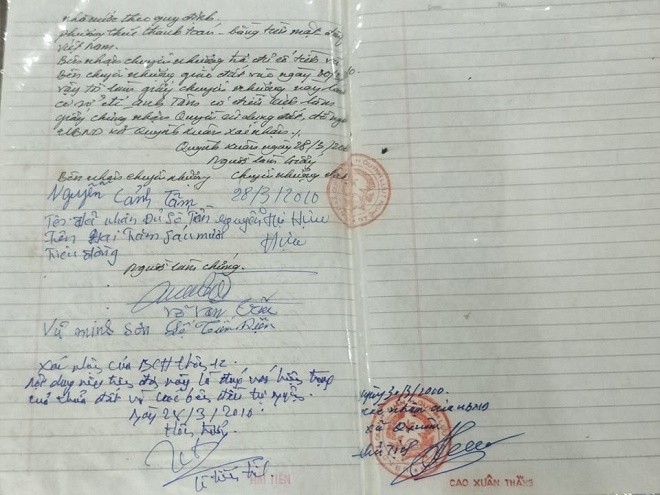 nhà nước theo quy định.
phương thức thanh toán - bằng tiền mặt
Việt Nam.
Bên nhận chuyển nhượng trả đủ số tiền và
bên chuyển nhượng giao đất vào ngày
vậy tôi làm giấy chuyển nhượng này làm
cơ sở để anh Tâm có điều kiện làm
giấy chứng nhận Quyền sử dụng đất, đề nghị
UBND xã Quỳnh Xuân xác nhận./.
Quỳnh Xuân ngày 28/3/20
Người làm Giấy
Bên nhận chuyển nhượng chuyển nhượng
Nguyễn Cảnh Tâm 28/3/2010
Tôi Đã nhận Đủ Số Tiền Nguyễn Thị Hựu
Trên Hai Trăm Sáu mươi Hựu
Triệu đồng
Người làm chứng.
Vũ Văn
Vũ minh Sơn
Xác nhận của BCH thôn 12.
Nội dung nêu trên đây là đúng với hiện trạng
của thửa đất và các bên đều tự nguyện.
Ngày 28/3/2010.
Ngày 30/3/2010.
xác nhận của UBND
xã Q Xuân
Chủ Tịch
CAO XUÂN THẮNG